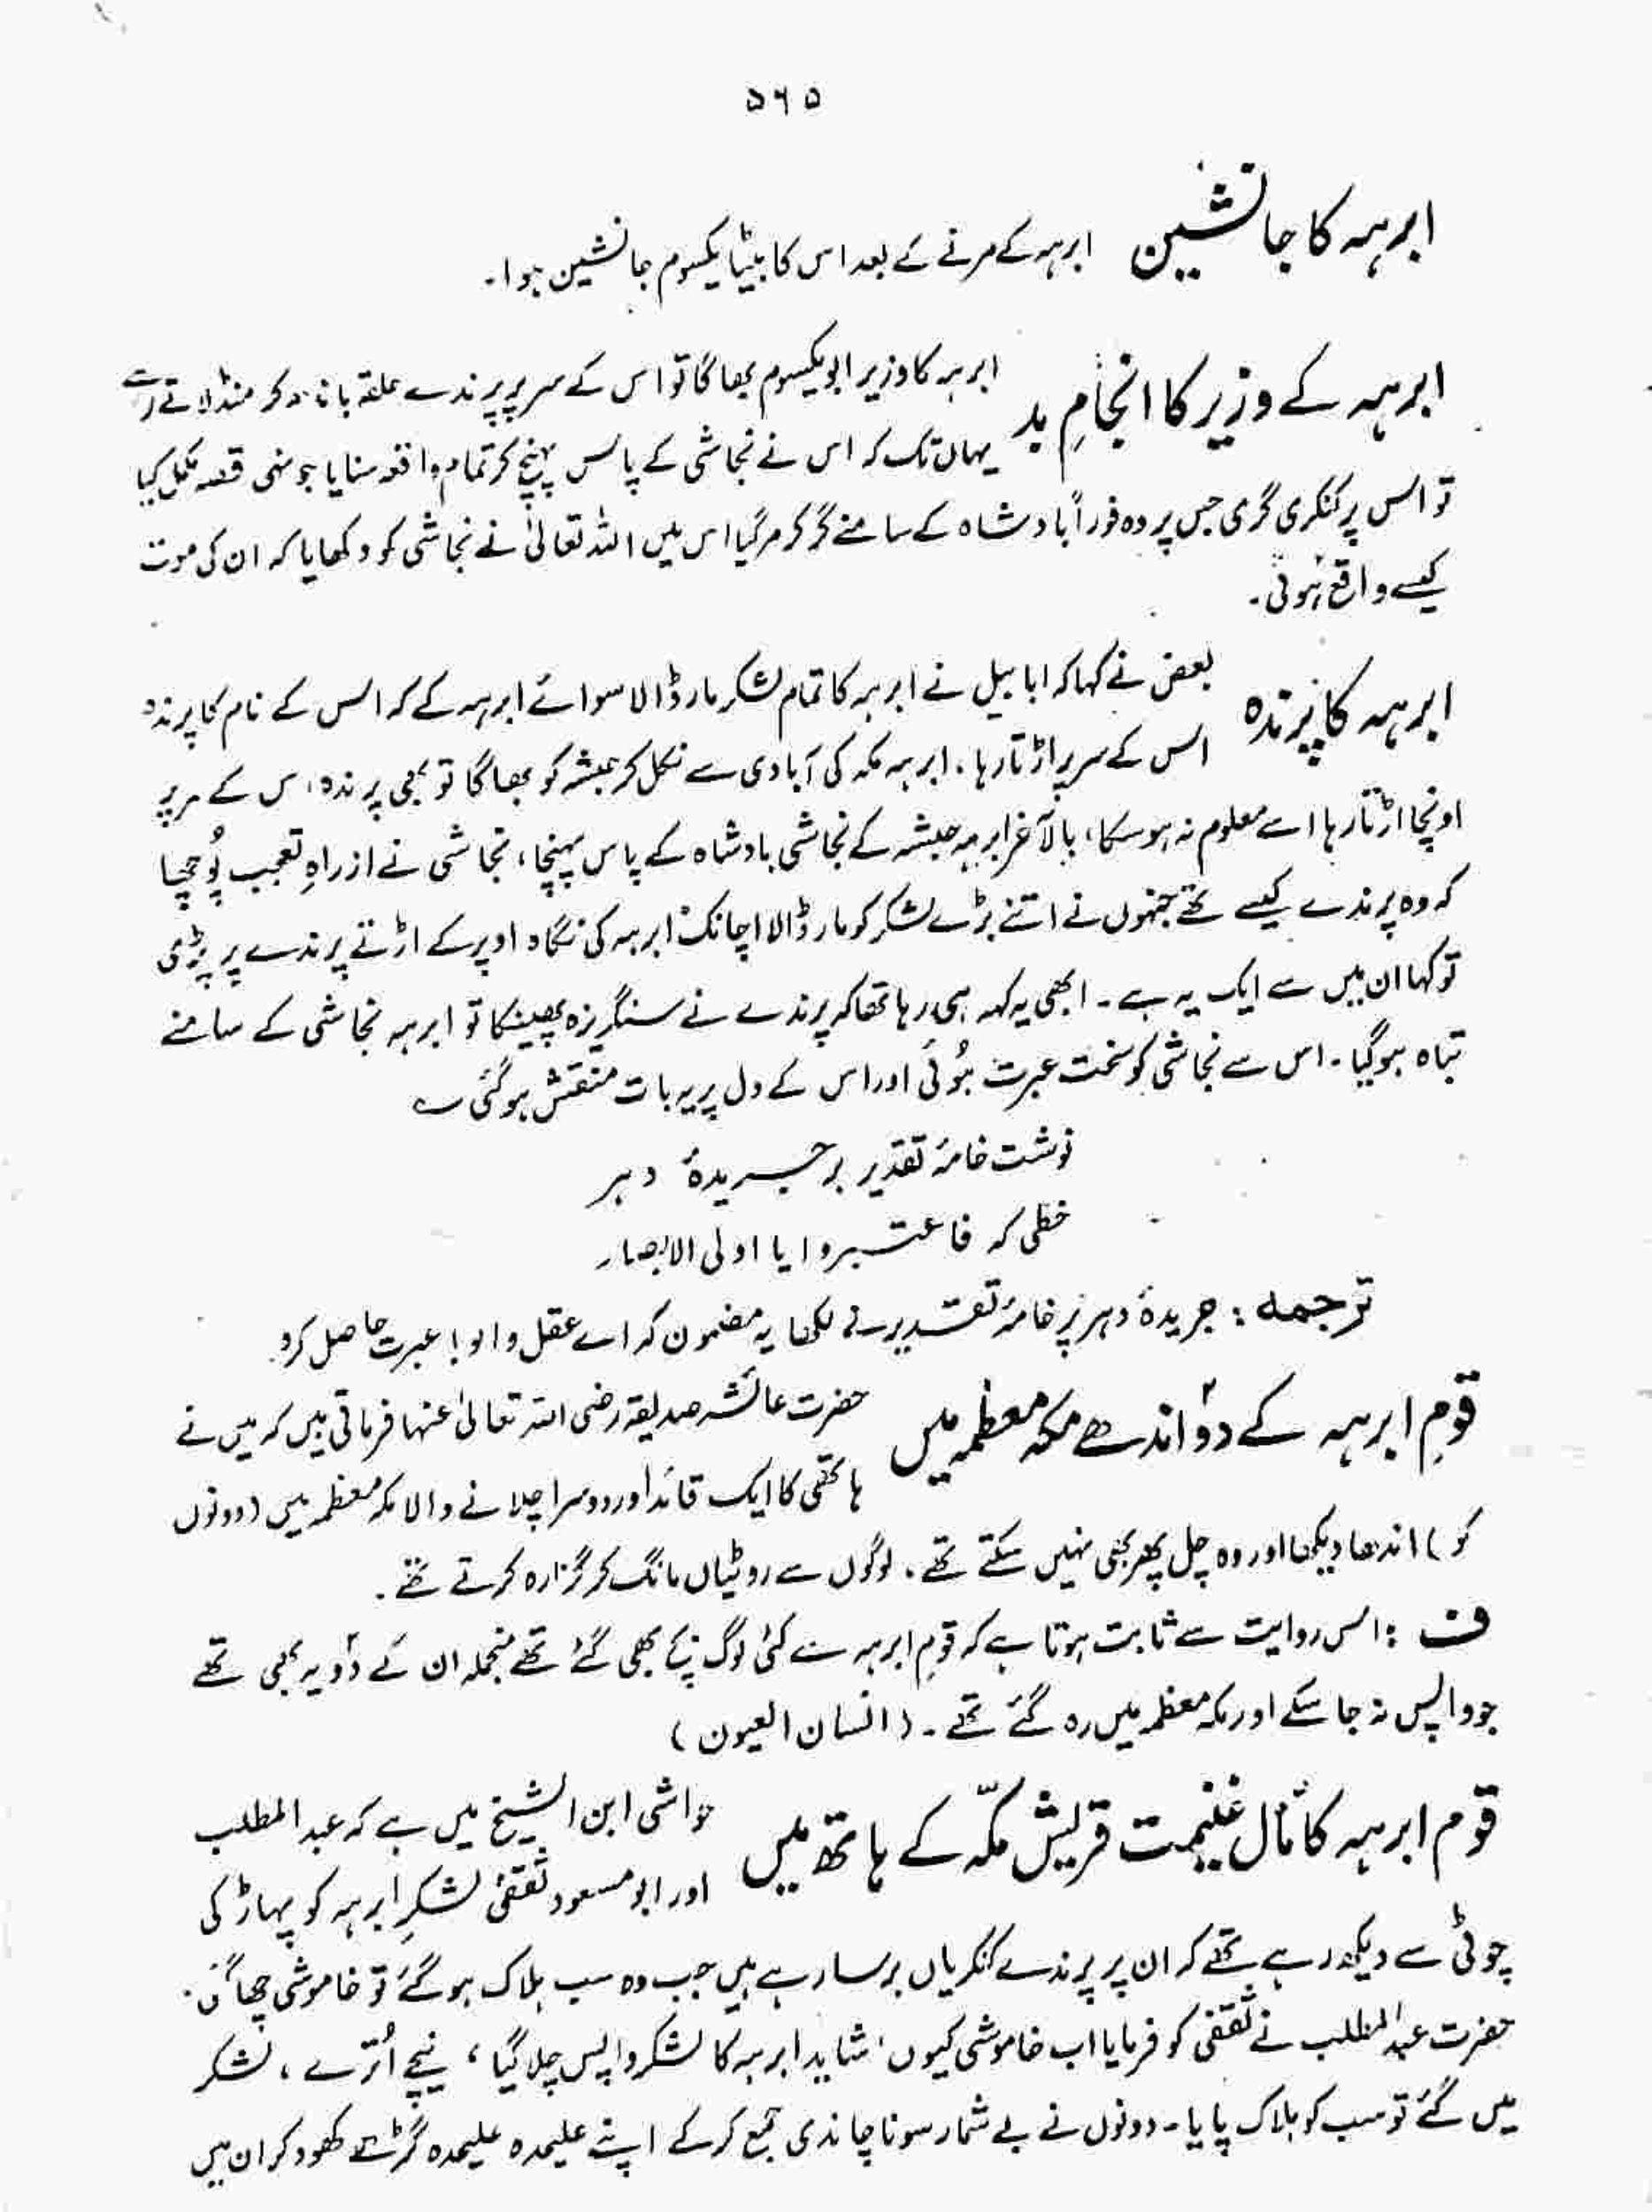 ۵۶۵
ابرہہ کا جانشین ابرہہ کے مرنے کے بعد اس کا بیٹا یکسوم جانشین ہوا۔
ابرہہ کے وزیر کا انجامِ بد ابرہہ کا وزیر ابویکسوم بھاگا تو اس کے سر پر پرندے حلقہ باندھ کر منڈلاتے رہے
یہاں تک کہ اس نے نجاشی کے پاس پہنچ کر تمام واقعہ سنایا جونہی قصہ مکمل کیا
تو اس پر کنکری گری جس پر وہ فوراً بادشاہ کے سامنے گر کر مر گیا اس میں اللہ تعالیٰ نے نجاشی کو دکھایا کہ ان کی موت
کیسے واقع ہوئی۔
ابرہہ کا پرندہ بعض نے کہا کہ ابابیل نے ابرہہ کا تمام لشکر مار ڈالا سوائے ابرہہ کے کہ اس کے نام کا پرندہ
اس کے سر پر اڑتا رہا۔ ابرہہ مکہ کی آبادی سے نکل کر حبشہ کو بھاگا تو بھی پرندہ اس کے سر پر
اونچا اڑتا رہا اسے معلوم نہ ہو سکا، بالآخر ابرہہ حبشہ کے نجاشی بادشاہ کے پاس پہنچا، نجاشی نے از راہِ تعجب پُوچھا
کہ وہ پرندے کیسے تھے جنہوں نے اتنے بڑے لشکر کو مار ڈالا اچانک ابرہہ کی نگاہ اوپر کے اڑتے پرندے پر پڑی
تو کہا ان میں سے ایک یہ ہے۔ ابھی یہ کہہ ہی رہا تھا کہ پرندے نے سنگریزہ پھینکا تو ابرہہ نجاشی کے سامنے
تباہ ہوگیا۔ اس سے نجاشی کو سخت عبرت ہُوئی اور اس کے دل پر یہ بات منقش ہوگئی ؎
نوشت خامۂ تقدیر بر جریدۂ دہر
خطی کہ فاعتبروا یا اولی الابصار
ترجمہ : جریدۂ دہر پر خامۂ تقدیر نے لکھا یہ مضمون کہ اے عقل والو! عبرت حاصل کرو۔
قومِ ابرہہ کے دو اندھے مکہ معظمہ میں حضرت عائشہ صدیقہ رضی اللہ تعالیٰ عنہا فرماتی ہیں کہ میں نے
ہاتھی کا ایک قائد اور دوسرا چلانے والا مکہ معظمہ میں (دونوں
کو) اندھا دیکھا اور وہ چل پھر بھی نہیں سکتے تھے۔ لوگوں سے روٹیاں مانگ کر گزارہ کرتے تھے۔
ف : اس روایت سے ثابت ہوتا ہے کہ قومِ ابرہہ سے کئی لوگ بچ بھی گئے تھے منجملہ ان کے دو یہ بھی تھے
جو واپس نہ جا سکے اور مکہ معظمہ میں رہ گئے تھے۔ (انسان العیون)
قوم ابرہہ کا مال غنیمت قریش مکّہ کے ہاتھ میں حواشی ابن الشیخ میں ہے کہ عبدالمطلب
اور ابو مسعود ثقفی لشکرِ ابرہہ کو پہاڑ کی
چوٹی سے دیکھ رہے تھے کہ ان پر پرندے کنکریاں برسا رہے ہیں جب وہ سب ہلاک ہو گئے تو خاموشی چھا گئی۔
حضرت عبدالمطلب نے ثقفی کو فرمایا اب خاموشی کیوں، شاید ابرہہ کا لشکر واپس چلا گیا، نیچے اُترے، لشکر
میں گئے تو سب کو ہلاک پایا۔ دونوں نے بے شمار سونا چاندی جمع کر کے اپنے علیحدہ علیحدہ گڑھے کھود کر ان میں